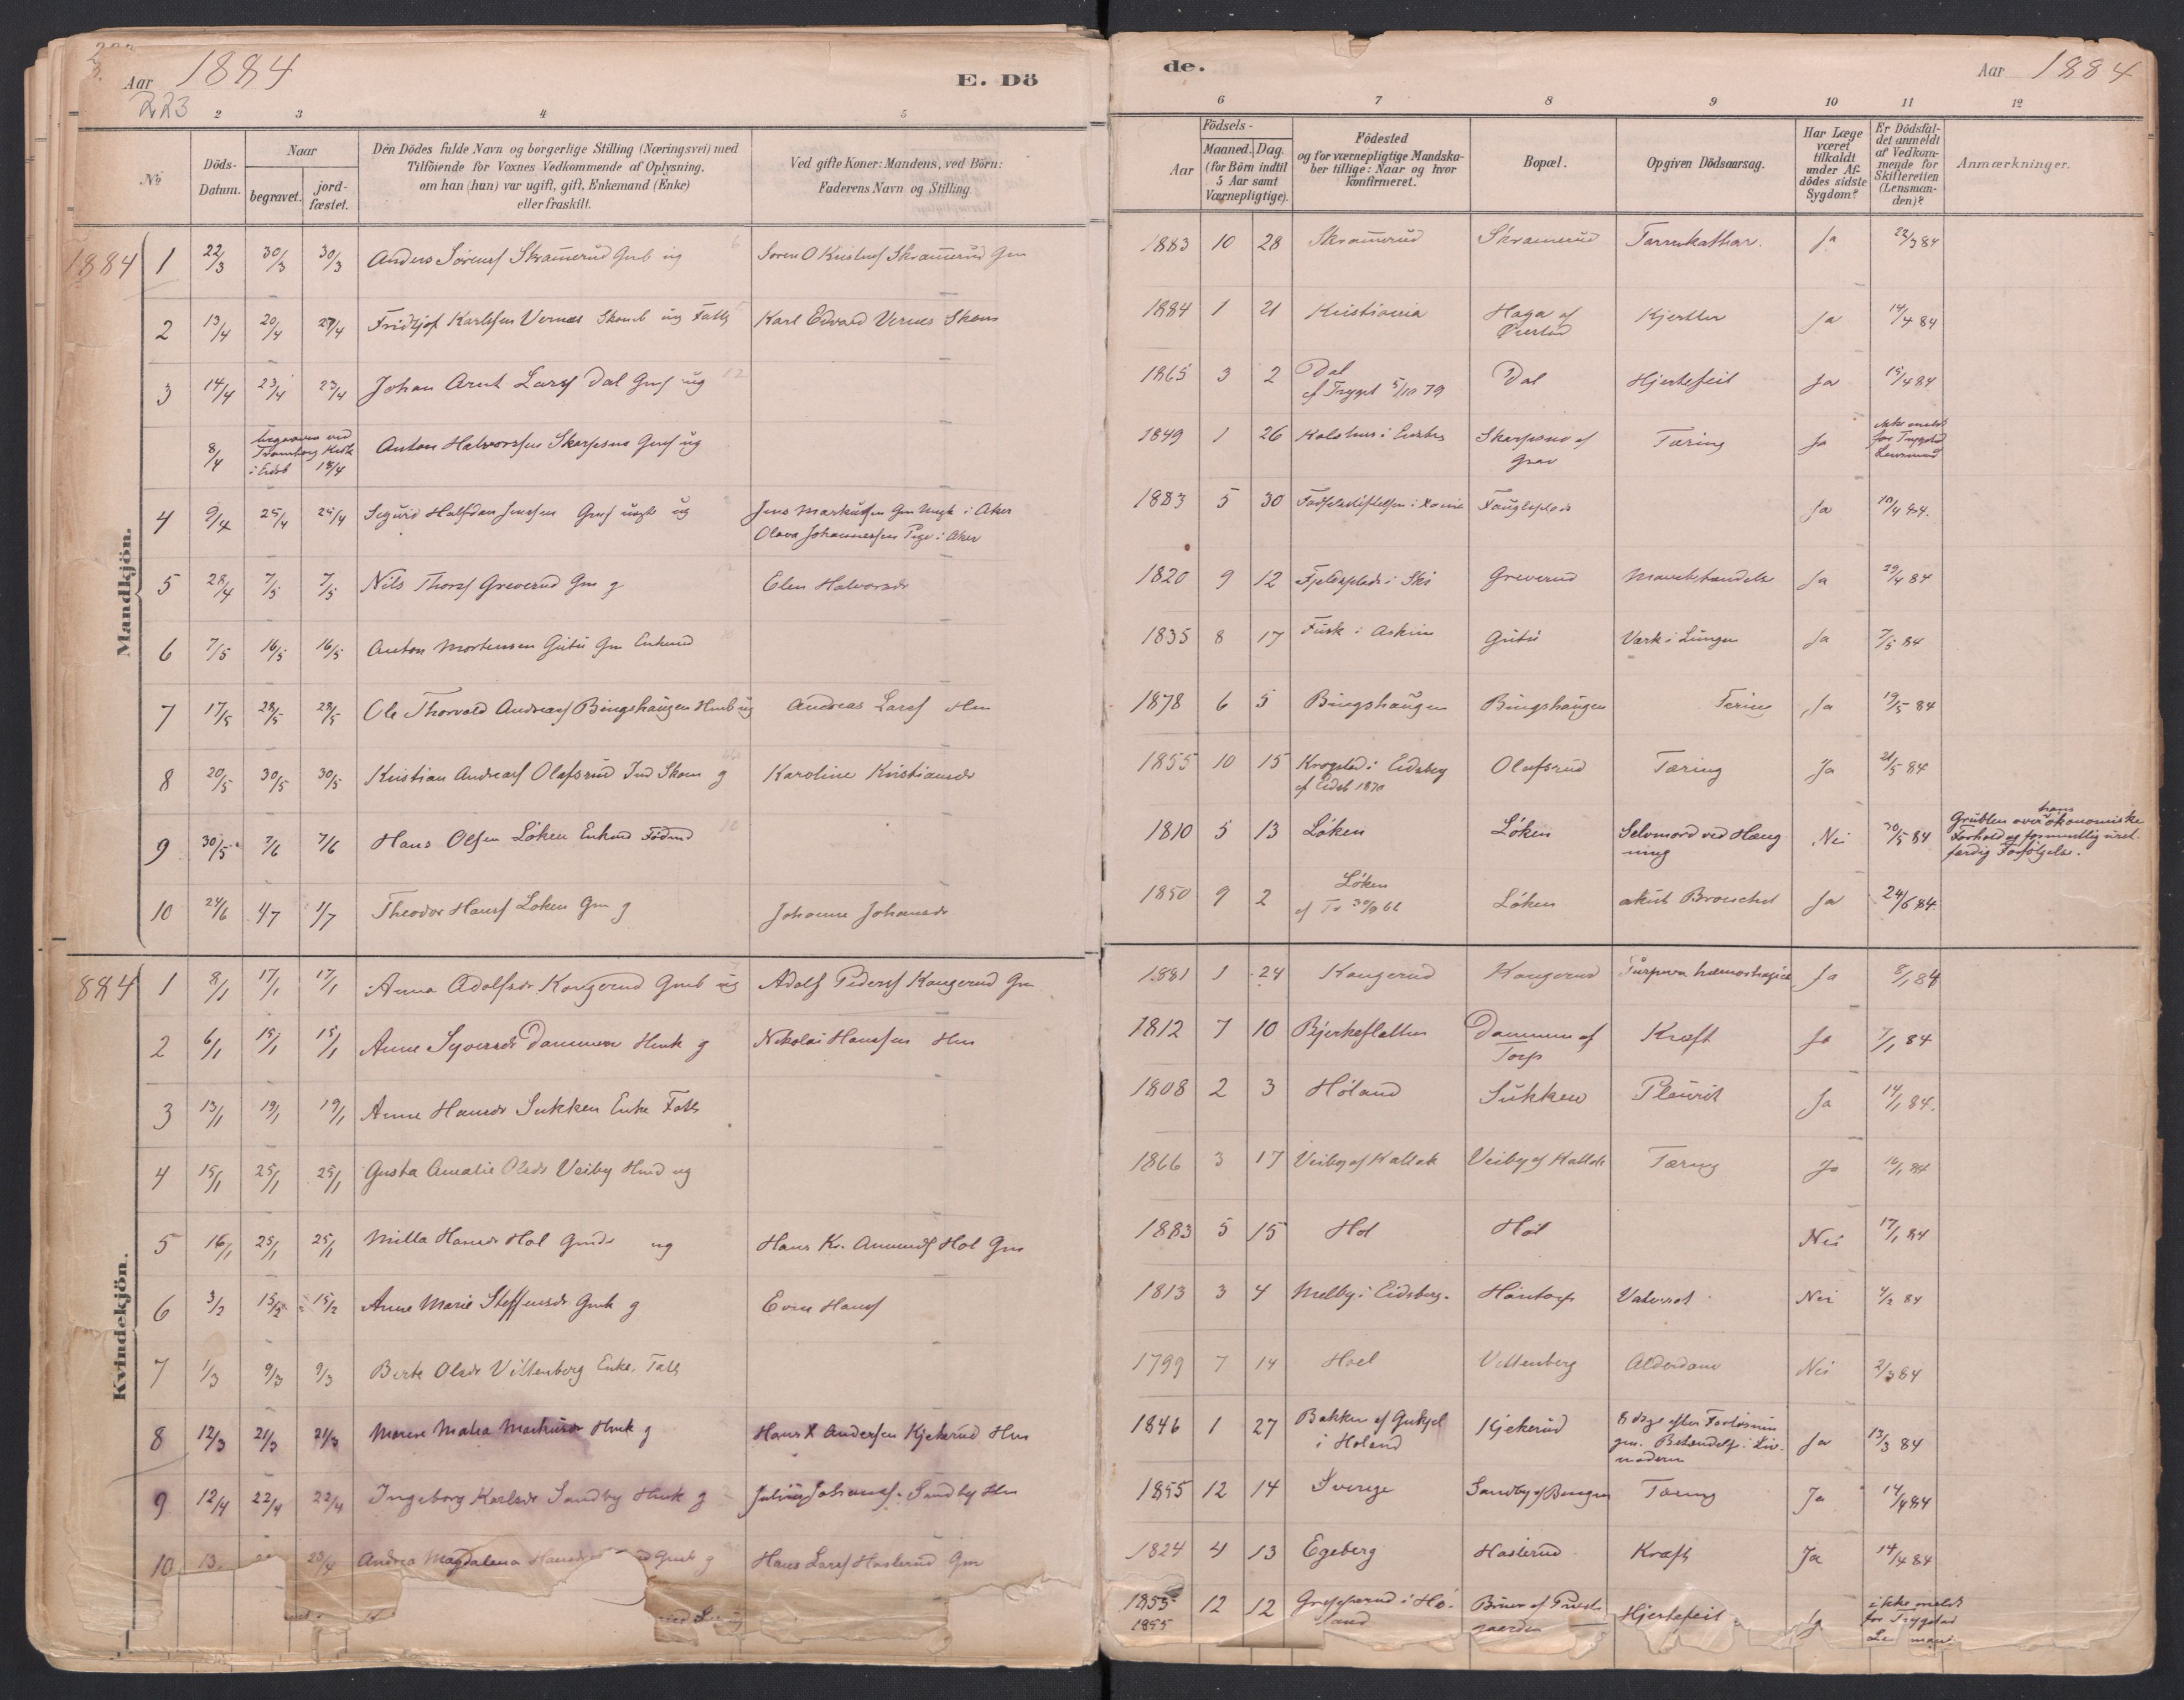 Aar 1884
E. Dö
de.
Aar 1884
223
2 3 4 5 6 7 8 9 10 11 12
№
Döds-Datum.
Naar
begravet.
jord-fæstet.
Den Dödes fulde Navn og borgerlige Stilling (Næringsvei) med
Tilföiende for Voxnes Vedkommende af Oplysning,
om han (hun) var ugift, gift, Enkemand (Enke)
eller fraskilt.
Ved gifte Koner: Mandens, ved Börn:
Faderens Navn og Stilling.
Födsels-
Aar
Maaned. Dag.
(for Börn indtil
5 Aar samt
Værnepligtige).
Födested
og for værnepligtige Mandska-
ber tillige: Naar og hvor
konfirmeret.
Bopæl.
Opgiven Dödsaarsag.
Har Læge
været
tilkaldt
under Af-
dödes sidste
Sygdom?
Er Dödsfal-
det anmeldt
af Vedkom-
mende for
Skifteretten
(Lensman-
den)?
Anmærkninger.
Mandkjön.
1884 1 22/3 30/3 30/3 Anders Sörens Skramerud Gmb ug Sören O Skramerud Gm 1883 10 28 Skramerud Skramerud Tarmkathar. Ja 22/3 84
2 13/4 20/4 27/4 Fridtjof Karlsen Vernes ug Fatt Karl Edvard Vernes Skom 1884 1 21 Kristiania Haga af Ja 14/4 84
3 14/4 23/4 23/4 Johan Arnt Lars Dal ug 1865 3 2 Dal Dal Hjertefeil Ja 15/4 84
cf Trygst 5/10 79
8/4 begraven ved Kirke i Eidsb 18/4 Anton Halvorsen Skarpsno ug 1849 1 26 Skarpsno af Grav Tæring Ja ikke meldt for Trygstad Lensmand
4 9/4 25/4 25/4 Sigurd Halfdan Jensen ug Jens Markussen i Aker 1883 5 30 Ja 10/4 84.
Olava Johannessen Pige i Aker
5 28/4 7/5 7/5 Nils Thors Greverud Gm g Elen Halvorsdr 1820 9 12 i Ski Greverud Ja 29/4 84
6 7/5 16/5 16/5 Anton Mortensen Gutu Gm Enkemd 1835 8 17 Fusk i Askim Gutu Værk i Lungen Ja 7/5 84
7 17/5 28/5 28/5 Ole Thorvald Andreas Bingshaugen Hmb ug Andreas Lars Hm 1878 6 5 Bingshaugen Bingshaugen Tæring Ja 19/5 84
8 20/5 30/5 30/5 Kristian Andreas Olafsrud Ind Skom g Karoline Kristiansdr 1855 10 15 Krogstad i Eidsberg Olafsrud Tæring Ja 21/5 84
cf Eidsb 1870
9 30/5 7/6 7/6 Hans Olsen Löken Enkmd Födrd 1810 5 13 Löken Löken Selvmord ved Hæng Nei 30/5 84 Grublen over hans ökonomiske
ning Forhold og formentlig uret-
færdig Forfölgelse.
10 24/6 1/7 1/7 Theodor Hans Löken Gm g Johanne Johansdr 1850 9 2 Löken Löken akut Bronchit Ja 24/6 84
Kvindekjön.
884 1 8/1 17/1 17/1 Anna Adolfsdr Kongerud Gmb ug Adolf Peders Kongerud Gm 1881 1 24 Kongerud Kongerud Purpura hæmorhagica Ja 8/1 84
2 6/1 15/1 15/1 Anne Syversdr Dammen Hmk g Nikolai Hansen Hm 1812 7 10 Bjerkesletten Dammen af Torp Kræft Ja 7/1 84
3 13/1 19/1 19/1 Anne Hansdr Sukken Enke Fatt 1808 2 3 Höland Sukken Pleurit Ja 14/1 84.
4 15/1 25/1 25/1 Gusta Amalie Olsdr Veiby Hmd ug 1866 3 17 Veiby af Kallak Veiby af Kallak Tæring Ja 16/1 84
5 16/1 25/1 25/1 Milla Hansdr Hol Gmdr ug Hans Kr. Amunds Hol Gm 1883 5 15 Hol Hol Nei 17/1 84
6 3/2 15/2 15/2 Anne Marie Steffensdr Gmk g Even Hans 1813 3 4 Melby i Eidsberg. Hantorp Nei 4/2 84
7 1/3 9/3 9/3 Berte Olsdr Villenberg Enke, Fatt 1799 7 14 Hoel Villenberg Alderdom Nei 2/3 84
8 12/3 21/3 21/3 Maren Markusdr Hmk g Hans K Andersen Kjekerud Hm 1846 1 27 Bakken af i Höland Kjekerud 8 dage efter Ja 13/3 84
9 12/4 22/4 22/4 Ingeborg Karlsdr Sandby Hmk g Julius Johans. Sandby Hm 1855 12 14 Sverige Sandby af Bingen Tæring Ja 14/4 84
10 13. 23/4 Andrea Magdalena Gmk g Hans Lars Haslerud Gm 1824 4 13 Egeberg Haslerud Kræft Ja 14/4 84
1855 12 12 i Hö-land Hjertefeil Ja ikke meldt for Trygstad
1855